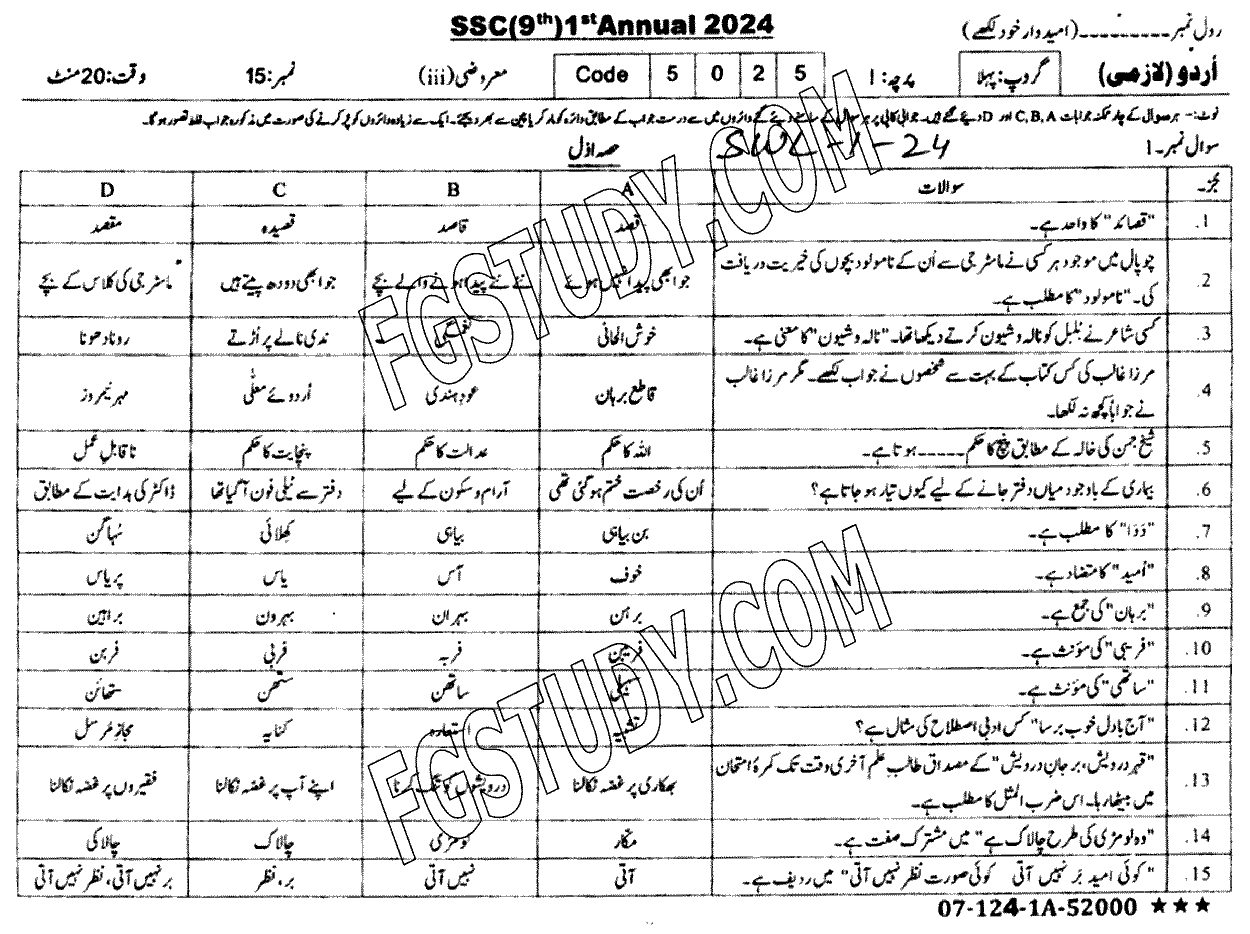 SSC(9th)1st Annual 2024
رول نمبر ـــــــــــ (امیدوار خود لکھے)
اُردو (لازمی) گروپ: پہلا پرچہ: I Code 5 0 2 5 معروضی (iii) نمبر: 15 وقت: 20 منٹ
نوٹ:- ہر سوال کے چار ممکنہ جوابات C,B,A اور D دیئے گئے ہیں۔ جوابی کاپی پر ہر سوال کے سامنے دیئے گئے دائروں میں سے درست جواب کے مطابق دائرہ کو مارکر یا پین سے بھر دیجئے۔ ایک سے زیادہ دائروں کو پُر کرنے کی صورت میں مذکورہ جواب غلط تصور ہو گا۔
سوال نمبر-1 حصہ اوّل SWL-1-24
جز۔ سوالات A B C D
1. "قصائد" کا واحد ہے۔ قصد قاصد قصیدہ مقصد
2. چوپال میں موجود ہر کسی نے ماسٹر جی سے اُن کے نامولود بچوں کی خیریت دریافت
کی۔ "نامولود" کا مطلب ہے۔ جو ابھی پیدا نہیں ہوئے نئے نئے پیدا ہونے والے بچے جو ابھی دودھ پیتے ہیں ماسٹر جی کی کلاس کے بچے
3. کسی شاعر نے بُلبل کو نالہ و شیون کرتے دیکھا تھا۔ "نالہ و شیون" کا معنی ہے۔ خوش الحانی نغمگی ندی نالے پر اُڑتے رونا دھونا
4. مرزا غالب کی کس کتاب کے بہت سے شخصوں نے جواب لکھے۔ مگر مرزا غالب
نے جواباً کچھ نہ لکھا۔ قاطع برہان عودِ ہندی اُردوئے معلّٰی مہر نیمروز
5. شیخ جمن کی خالہ کے مطابق پنچ کا حکم ـــــــ ہوتا ہے۔ اللہ کا حکم عدالت کا حکم پنچایت کا حکم ناقابلِ عمل
6. بیماری کے باوجود میاں دفتر جانے کے لیے کیوں تیار ہو جاتا ہے؟ اُن کی رخصت ختم ہو گئی تھی آرام و سکون کے لیے دفتر سے ٹیلی فون آ گیا تھا ڈاکٹر کی ہدایت کے مطابق
7. "دَدَا" کا مطلب ہے۔ بن بیاہی بیاہی کھلائی سُہاگن
8. "اُمید" کا متضاد ہے۔ خوف آس یاس پریاس
9. "برہان" کی جمع ہے۔ برہن بہران بہرون براہین
10. "فریبی" کی مؤنث ہے۔ فریبن فربہ فربی فربن
11. "ساتھی" کی مؤنث ہے۔ سہیلی ساتھن ستھن ستھائن
12. "آج بادل خوب برسا" کس ادبی اصطلاح کی مثال ہے؟ تشبیہ استعارہ کنایہ مجاز مُرسل
13. "قہرِ درویش، بر جانِ درویش" کے مصداق طالب علم آخری وقت تک کمرۂ امتحان
میں بیٹھا رہا۔ اس ضرب المثل کا مطلب ہے۔ بھکاری پر غصہ نکالنا درویشوں کو تنگ کرنا اپنے آپ پر غصہ نکالنا فقیروں پر غصہ نکالنا
14. "وہ لومڑی کی طرح چالاک ہے" میں مشترک صفت ہے۔ مکار لومڑی چالاک چالاکی
15. "کوئی امید بَر نہیں آتی کوئی صورت نظر نہیں آتی" میں ردیف ہے۔ آتی نہیں آتی بر، نظر بر نہیں آتی، نظر نہیں آتی
07-124-1A-52000 ★★★
FGSTUDY.COM
FGSTUDY.COM